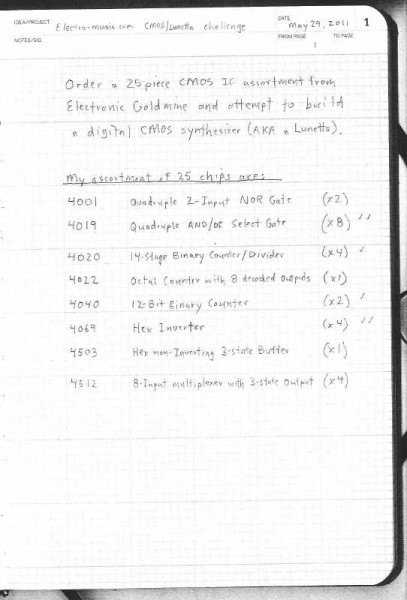 IDEA/PROJECT Electro-music.com CMOS/Lunetta challenge
DATE May 29, 2011
1
NOTES/SIG.
FROM PAGE TO PAGE
1
Order a 25 piece CMOS IC assortment from
Electronic Goldmine and attempt to build
a digital CMOS synthesizer (AKA a Lunetta).
My assortment of 25 chips are:
4001 Quadruple 2-Input NOR Gate (x2)
4019 Quadruple AND/OR Select Gate (x8) ✓✓
4020 14-Stage Binary Counter/Divider (x4) ✓
4022 Octal Counter with 8 decoded outputs (x1)
4040 12-Bit Binary Counter (x2) ✓
4069 Hex Inverter (x4) ✓✓
4503 Hex non-Inverting 3-state Buffer (x1)
4512 8-Input multiplexer with 3-state Output (x4)